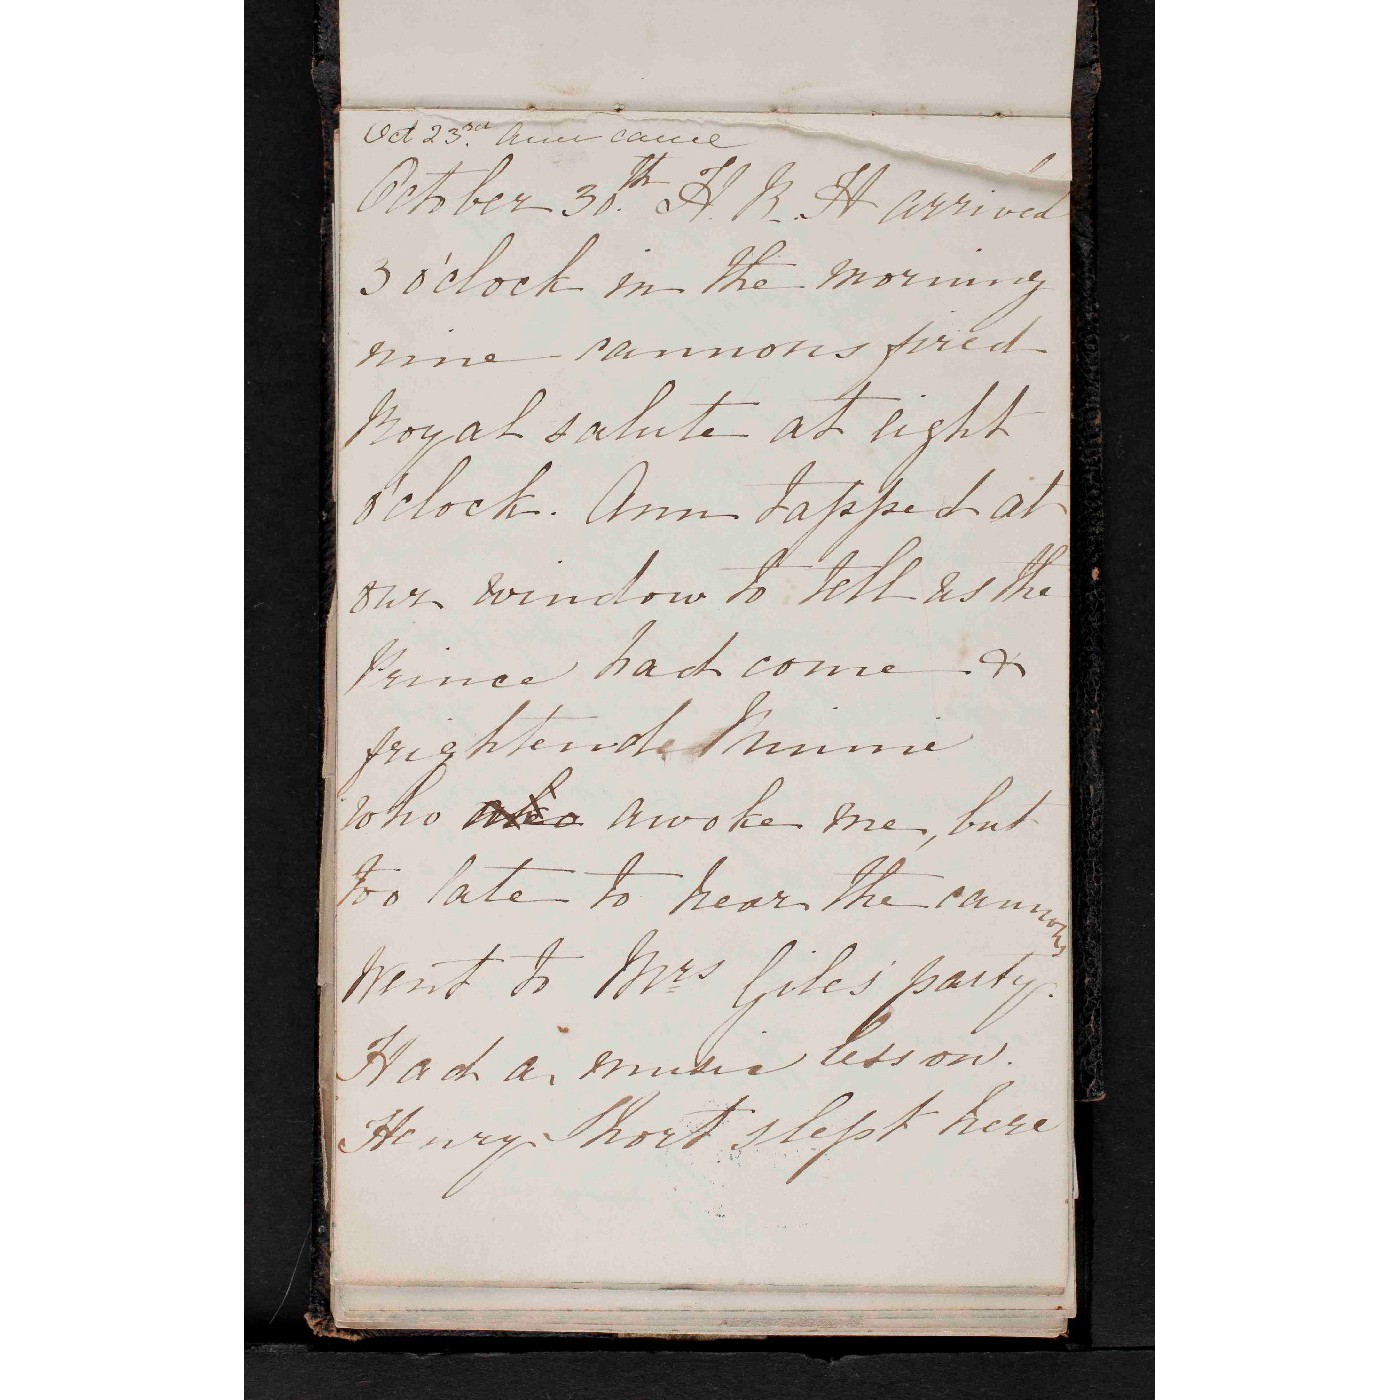 Oct 23rd. Ann came
October 30.th H. R. H arrived
3 o'clock in the morning
nine cannons fired
Royal salute at eight
o'clock. Ann tapped at
our window to tell us the
Prince had come &
frightend Minnie
who also awoke me, but
too late to hear the cannons
Went to Mrs Giles' party.
Had a music lesson.
Henry Short slept here